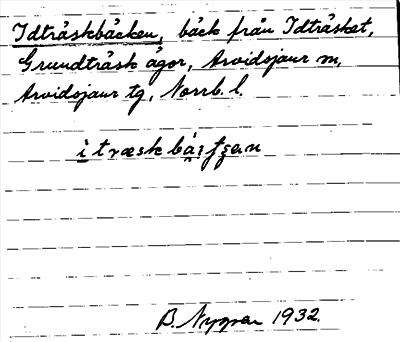 Idträskbäcken, bäck från Idträsket,
Grundträsk ägor, Arvidsjaur sn,
Arvidsjaur tg, Norrb. l.
B. Nygren 1932.